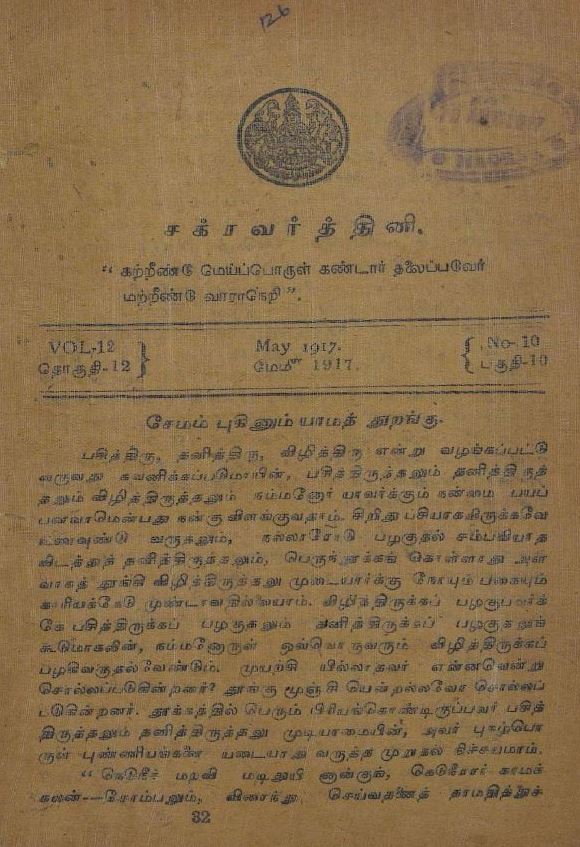 126
சக்ரவர்த்தினி.
“ கற்றீண்டு மெய்ப்பொருள் கண்டார் தலைப்படுவர்
மற்றீண்டு வாராநெறி ”.
VOL-12 May 1917. No-.10
தொகுதி-12 மேமீ 1917. பகுதி-10
சேமம் புகினும் யாமத் துறங்கு.
பசித்திரு, தனித்திரு, விழித்திரு என்று வழங்கப்பட்டு
வருவது கவனிக்கப்படுமாயின், பசித்திருத்தலும் தனித்திருத்
தலும் விழித்திருத்தலும் நம்மனோர் யாவர்க்கும் நன்மை பயப்
பனவாமென்பது நன்கு விளங்குவதாம். சிறிது பசியாகவிருக்கவே
உணவுண்டு வருதலும், நல்லாரோடு பழகுதல் சம்பவியாத
விடத்துத் தனித்திருத்தலும், பெருந்தூக்கங் கொள்ளாது அள
வாகத் தூங்கி விழித்திருத்தலு முடையார்க்கு நோயும் பகையும்
காரியக்கேடு முண்டாவதில்லையாம். விழித்திருக்கப் பழகுபவர்க்
கே பசித்திருக்கப் பழகுதலும் தனித்திருக்கப் பழகுதலுங்
கூடுமாகலின், நம்மனோருள் ஒவ்வொருவரும் விழித்திருக்கப்
பழகிவருதல்வேண்டும். முயற்சி யில்லாதவர் என்னவென்று
சொல்லப்படுகின்றனர்? தூங்கு மூஞ்சி யென்றல்லவோ சொல்லப்
படுகின்றனர். தூக்கத்தில் பெரும் பிரியங்கொண்டிருப்பவர் பசித்
திருத்தலும் தனித்திருத்தலு முடியாமையின், அவர் புகழ்பொ
ருள் புண்ணியங்களை யடையாது வருத்த முறுதல் நிச்சயமாம்.
“ நெடுநீர் மறவி மடிதுயி னான்கும், கெடுநீரார் காமக்
கலன்—சோம்பலும், விரைந்து செய்வதனைத் தாமதித்துச்
32